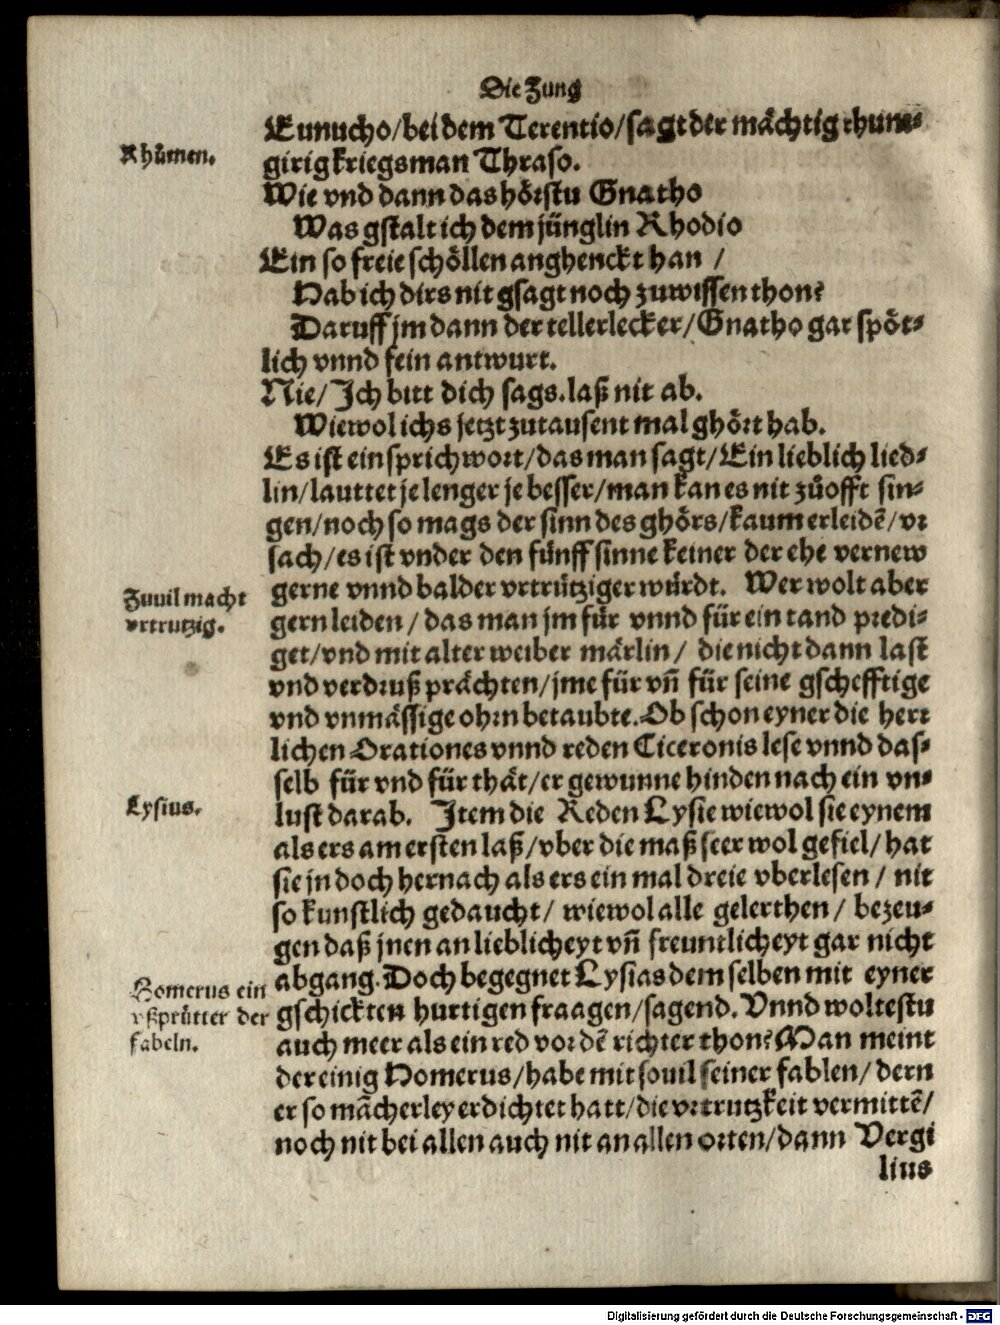 Die Zung
Eunucho/bei dem Terentio/sagt der mächtig rhum⸗
Rhůmen.
girig kriegsman Thraso.
Wie vnd dann das hörstu Gnatho
Was gstalt ich dem jünglin Rhodio
Ein so freie schöllen anghenckt han /
Hab ich dirs nit gsagt noch zuwissen thon?
Daruff jm dann der tellerlecker/Gnatho gar spöt⸗
lich vnnd fein antwurt.
Nie/Ich bitt dich sags.laß nit ab.
Wiewol ichs jetzt zutausent mal ghört hab.
Es ist ein sprichwort/das man sagt/Ein lieblich lied⸗
lin/lauttet je lenger je besser/man kan es nit zůofft sin⸗
gen/noch so mags der sinn des ghörs/kaum erleidē/vr
sach/es ist vnder den fünff sinne keiner der ehe vernew
gerne vnnd balder vrtrütziger würdt. Wer wolt aber
Zuuil macht
vrtrutzig.
gern leiden / das man jm für vnnd für ein tand predi⸗
get/vnd mit alter weiber märlin / die nicht dann last
vnd verdruß prächten/jme für vñ für seine gschefftige
vnd vnmässige ohrn betaubte.Ob schon eyner die herr
lichen Orationes vnnd reden Ciceronis lese vnnd das⸗
selb für vnd für thät/er gewunne hinden nach ein vn⸗
Lysius.
lust darab. Item die Reden Lysie wiewol sie eynem
als ers am ersten laß/vber die maß seer wol gefiel/hat
sie jn doch hernach als ers ein mal dreie vberlesen / nit
so kunstlich gedaucht/ wiewol alle gelerthen / bezeu⸗
gen daß jnen an lieblicheyt vñ freuntlicheyt gar nicht
abgang.Doch begegnet Lysias dem selben mit eyner
Homerus ein
vßprütter der
fabeln.
gschickten hurtigen fraagen/sagend.Vnnd woltestu
auch meer als ein red vor dē richter thon?Man meint
der einig Homerus/habe mit souil seiner fablen/dern
er so mācherley erdichtet hatt/die vrtrutzkeit vermittē/
noch nit bei allen auch nit an allen orten/dann Vergi
lius
Digitalisierung gefördert durch die Deutsche Forschungsgemeinschaft - DFG